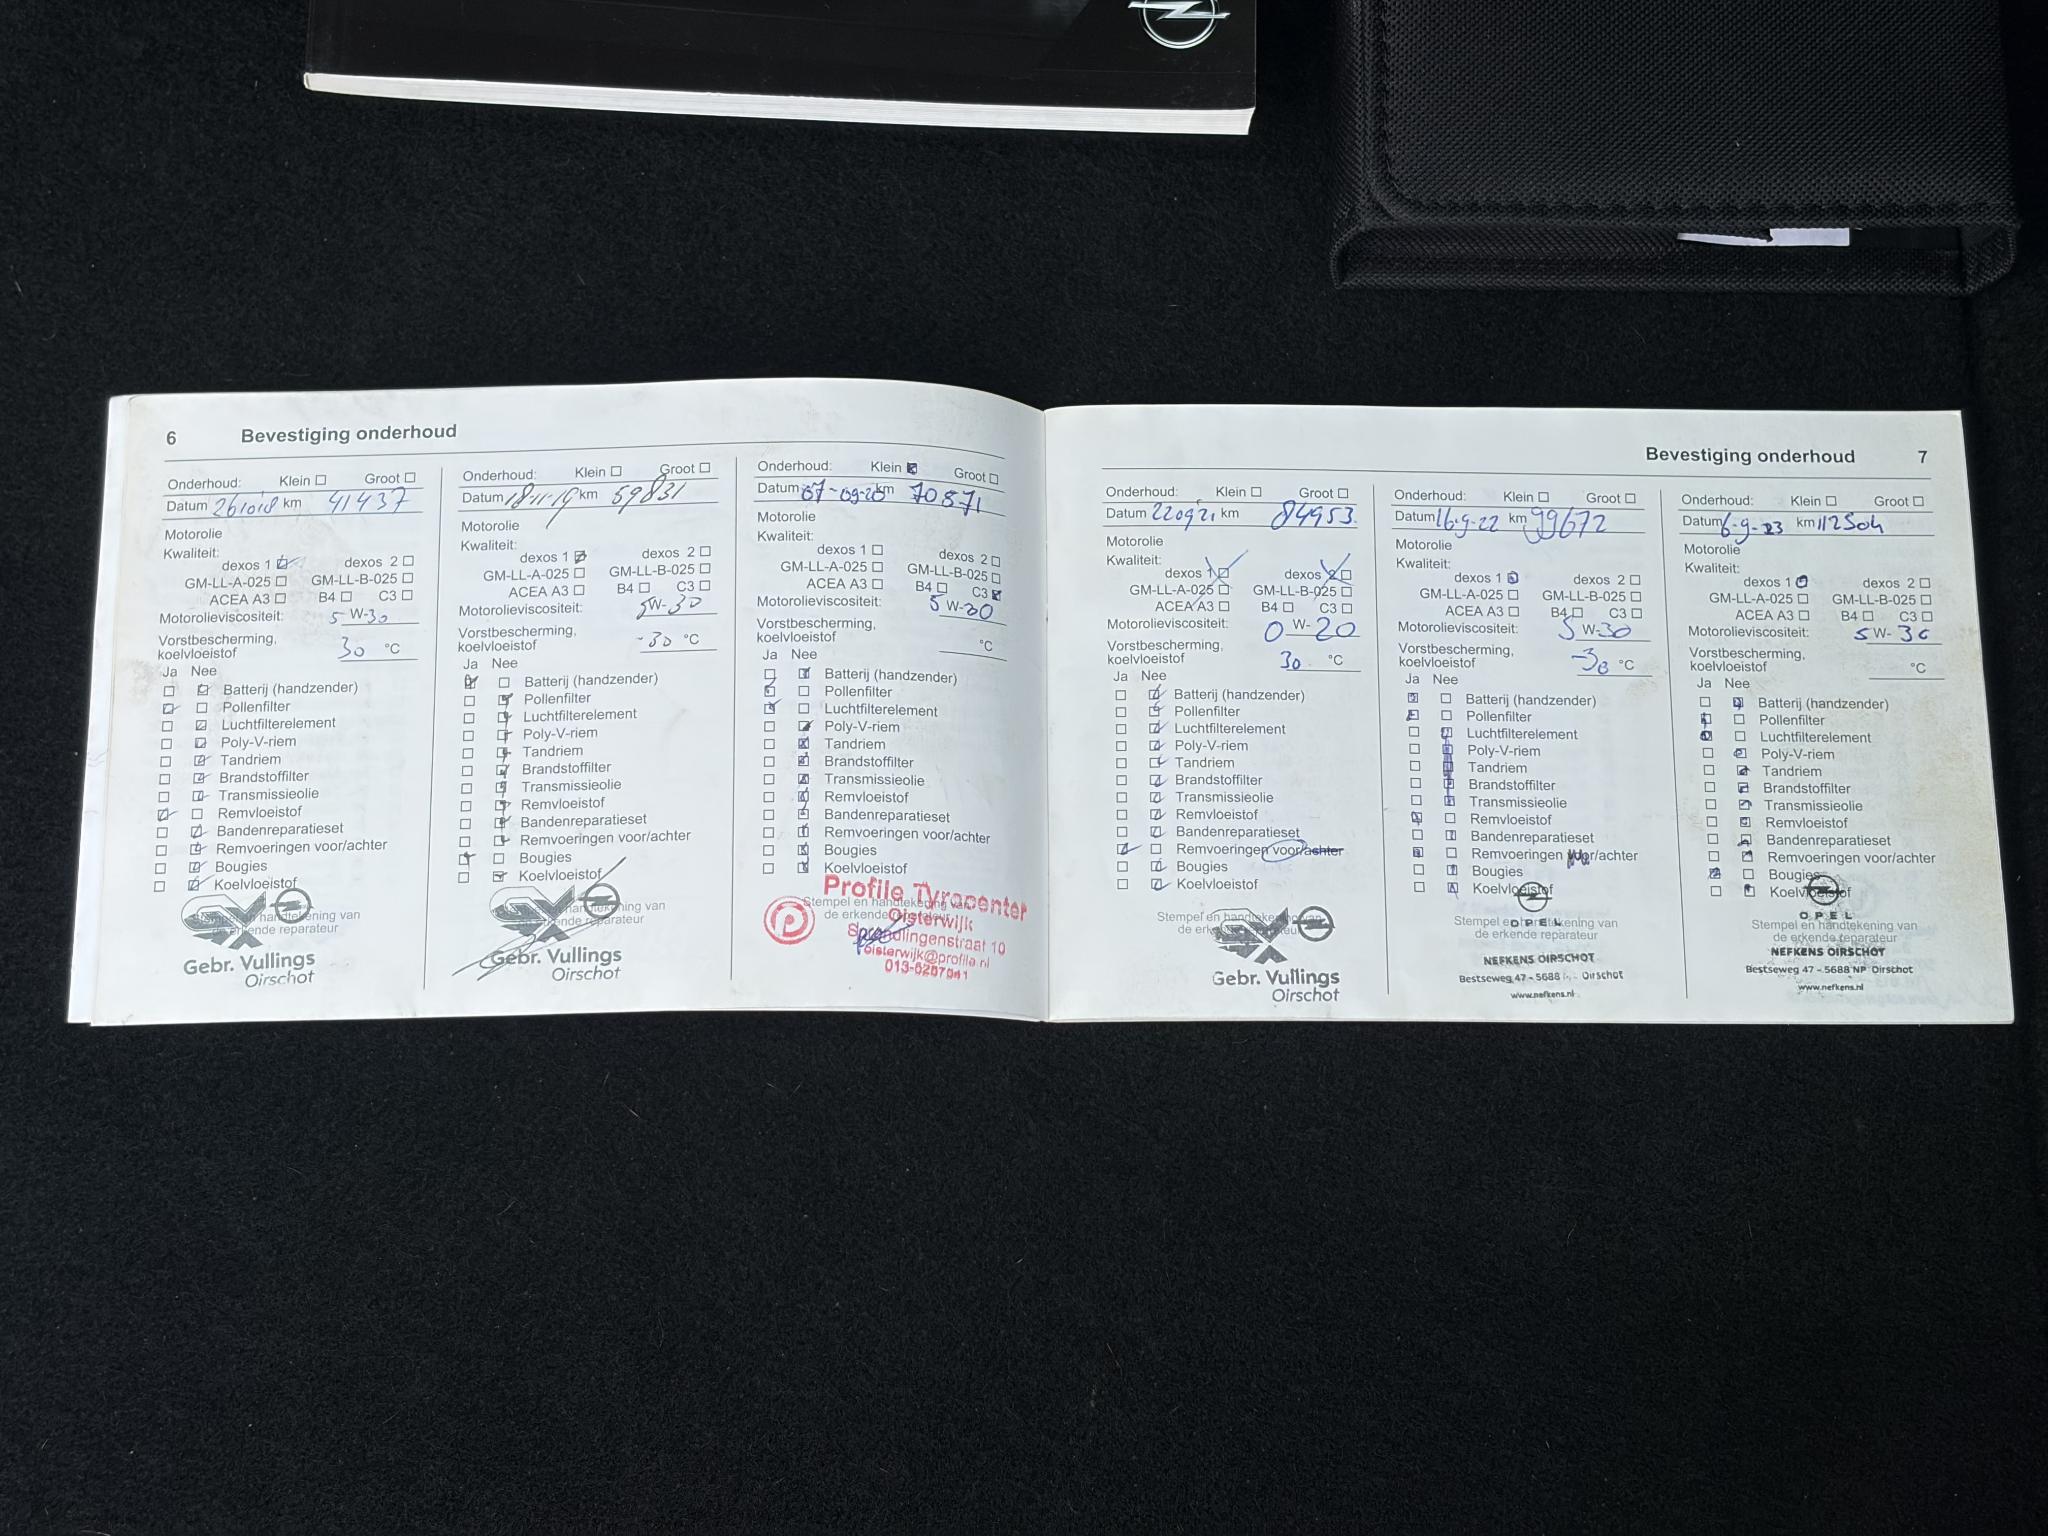 6 Bevestiging onderhoud
Onderhoud: Klein ☐ Groot ☐
Datum 261018 km 41437
Motorolie
Kwaliteit:
dexos 1 ☑ dexos 2 ☐
GM-LL-A-025 ☐ GM-LL-B-025 ☐
ACEA A3 ☐ B4 ☐ C3 ☐
Motorolieviscositeit: 5 W-30
Vorstbescherming,
koelvloeistof 30 °C
Ja Nee
☐ ☑ Batterij (handzender)
☑ ☐ Pollenfilter
☐ ☑ Luchtfilterelement
☐ ☑ Poly-V-riem
☐ ☑ Tandriem
☐ ☑ Brandstoffilter
☐ ☑ Transmissieolie
☑ ☐ Remvloeistof
☐ ☑ Bandenreparatieset
☐ ☑ Remvoeringen voor/achter
☐ ☑ Bougies
☐ ☑ Koelvloeistof
Stempel en handtekening van
de erkende reparateur
Gebr. Vullings
Oirschot
Onderhoud: Klein ☐ Groot ☐
Datum 18-11-19 km 59831
Motorolie
Kwaliteit:
dexos 1 ☑ dexos 2 ☐
GM-LL-A-025 ☐ GM-LL-B-025 ☐
ACEA A3 ☐ B4 ☐ C3 ☐
Motorolieviscositeit: 5W-30
Vorstbescherming,
koelvloeistof -30 °C
Ja Nee
☑ ☐ Batterij (handzender)
☐ ☑ Pollenfilter
☐ ☑ Luchtfilterelement
☐ ☑ Poly-V-riem
☐ ☑ Tandriem
☐ ☑ Brandstoffilter
☐ ☑ Transmissieolie
☐ ☑ Remvloeistof
☐ ☑ Bandenreparatieset
☐ ☑ Remvoeringen voor/achter
☑ ☐ Bougies
☐ ☑ Koelvloeistof
Stempel en handtekening van
de erkende reparateur
Gebr. Vullings
Oirschot
Onderhoud: Klein ☒ Groot ☐
Datum 07-09-20 km 70871
Motorolie
Kwaliteit:
dexos 1 ☐ dexos 2 ☐
GM-LL-A-025 ☐ GM-LL-B-025 ☐
ACEA A3 ☐ B4 ☐ C3 ☒
Motorolieviscositeit: 5 W-30
Vorstbescherming,
koelvloeistof °C
Ja Nee
☐ ☒ Batterij (handzender)
☑ ☐ Pollenfilter
☑ ☐ Luchtfilterelement
☐ ☒ Poly-V-riem
☐ ☒ Tandriem
☐ ☒ Brandstoffilter
☐ ☒ Transmissieolie
☐ ☒ Remvloeistof
☐ ☒ Bandenreparatieset
☐ ☒ Remvoeringen voor/achter
☐ ☒ Bougies
☐ ☒ Koelvloeistof
Stempel en handtekening van
de erkende reparateur
Profile Tyrecenter
Oisterwijk
Sprendlingenstraat 10
oisterwijk@profile.nl
Bevestiging onderhoud 7
Onderhoud: Klein ☐ Groot ☐
Datum 220921 km 84953
Motorolie
Kwaliteit:
dexos 1 ☐ dexos 2 ☐
GM-LL-A-025 ☐ GM-LL-B-025 ☐
ACEA A3 ☐ B4 ☐ C3 ☐
Motorolieviscositeit: 0 W-20
Vorstbescherming,
koelvloeistof 30 °C
Ja Nee
☐ ☑ Batterij (handzender)
☐ ☑ Pollenfilter
☐ ☑ Luchtfilterelement
☐ ☑ Poly-V-riem
☐ ☑ Tandriem
☐ ☑ Brandstoffilter
☐ ☑ Transmissieolie
☐ ☑ Remvloeistof
☐ ☑ Bandenreparatieset
☑ ☐ Remvoeringen voor/achter
☐ ☑ Bougies
☐ ☑ Koelvloeistof
Stempel en handtekening van
de erkende reparateur
Gebr. Vullings
Oirschot
Onderhoud: Klein ☐ Groot ☐
Datum 16-9-22 km 99672
Motorolie
Kwaliteit:
dexos 1 ☑ dexos 2 ☐
GM-LL-A-025 ☐ GM-LL-B-025 ☐
ACEA A3 ☐ B4 ☐ C3 ☐
Motorolieviscositeit: 5 W-30
Vorstbescherming,
koelvloeistof -30 °C
Ja Nee
☑ ☐ Batterij (handzender)
☑ ☐ Pollenfilter
☐ ☑ Luchtfilterelement
☐ ☑ Poly-V-riem
☐ ☑ Tandriem
☐ ☑ Brandstoffilter
☐ ☑ Transmissieolie
☑ ☐ Remvloeistof
☐ ☑ Bandenreparatieset
☑ ☐ Remvoeringen voor/achter
☐ ☑ Bougies
☐ ☑ Koelvloeistof
Stempel en handtekening van
OPEL
de erkende reparateur
NEFKENS OIRSCHOT
Bestseweg 47 - 5688 Oirschot
www.nefkens.nl
Onderhoud: Klein ☐ Groot ☐
Datum 6-9-23 km 112504
Motorolie
Kwaliteit:
dexos 1 ☑ dexos 2 ☐
GM-LL-A-025 ☐ GM-LL-B-025 ☐
ACEA A3 ☐ B4 ☐ C3 ☐
Motorolieviscositeit: 5 W-30
Vorstbescherming,
koelvloeistof °C
Ja Nee
☐ ☑ Batterij (handzender)
☑ ☐ Pollenfilter
☑ ☐ Luchtfilterelement
☐ ☑ Poly-V-riem
☐ ☑ Tandriem
☐ ☑ Brandstoffilter
☐ ☑ Transmissieolie
☐ ☑ Remvloeistof
☐ ☑ Bandenreparatieset
☐ ☑ Remvoeringen voor/achter
☑ ☐ Bougies
☐ ☑ Koelvloeistof
OPEL
Stempel en handtekening van
de erkende reparateur
NEFKENS OIRSCHOT
Bestseweg 47 - 5688 NP Oirschot
www.nefkens.nl